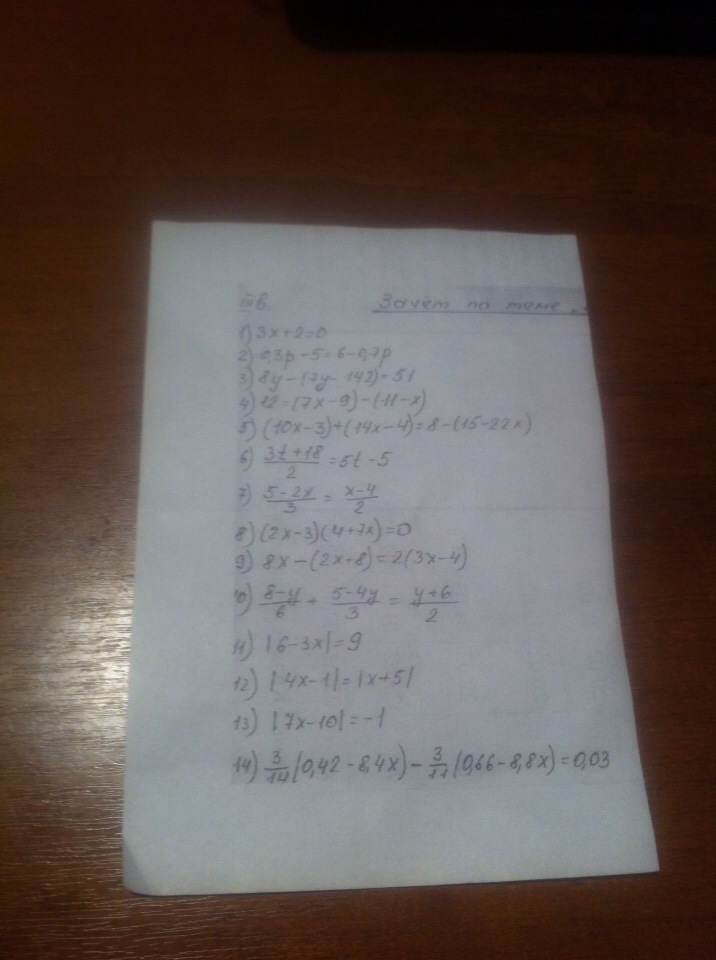 III в. Зачёт по теме "
1) 3x+2=0
2) 0,3p-5=6-0,7p
3) 8y-(7y-142)=51
4) 12=(7x-9)-(11-x)
5) (10x-3)+(14x-4)=8-(15-22x)
6) \frac{3t+18}{2}=5t-5
7) \frac{5-2x}{3}=\frac{x-4}{2}
8) (2x-3)(4+7x)=0
9) 8x-(2x+8)=2(3x-4)
10) \frac{8-y}{6}+\frac{5-4y}{3}=\frac{y+6}{2}
11) |6-3x|=9
12) |4x-1|=|x+5|
13) |7x-10|=-1
14) \frac{3}{14}(0,42-8,4x)-\frac{3}{11}(0,66-8,8x)=0,03